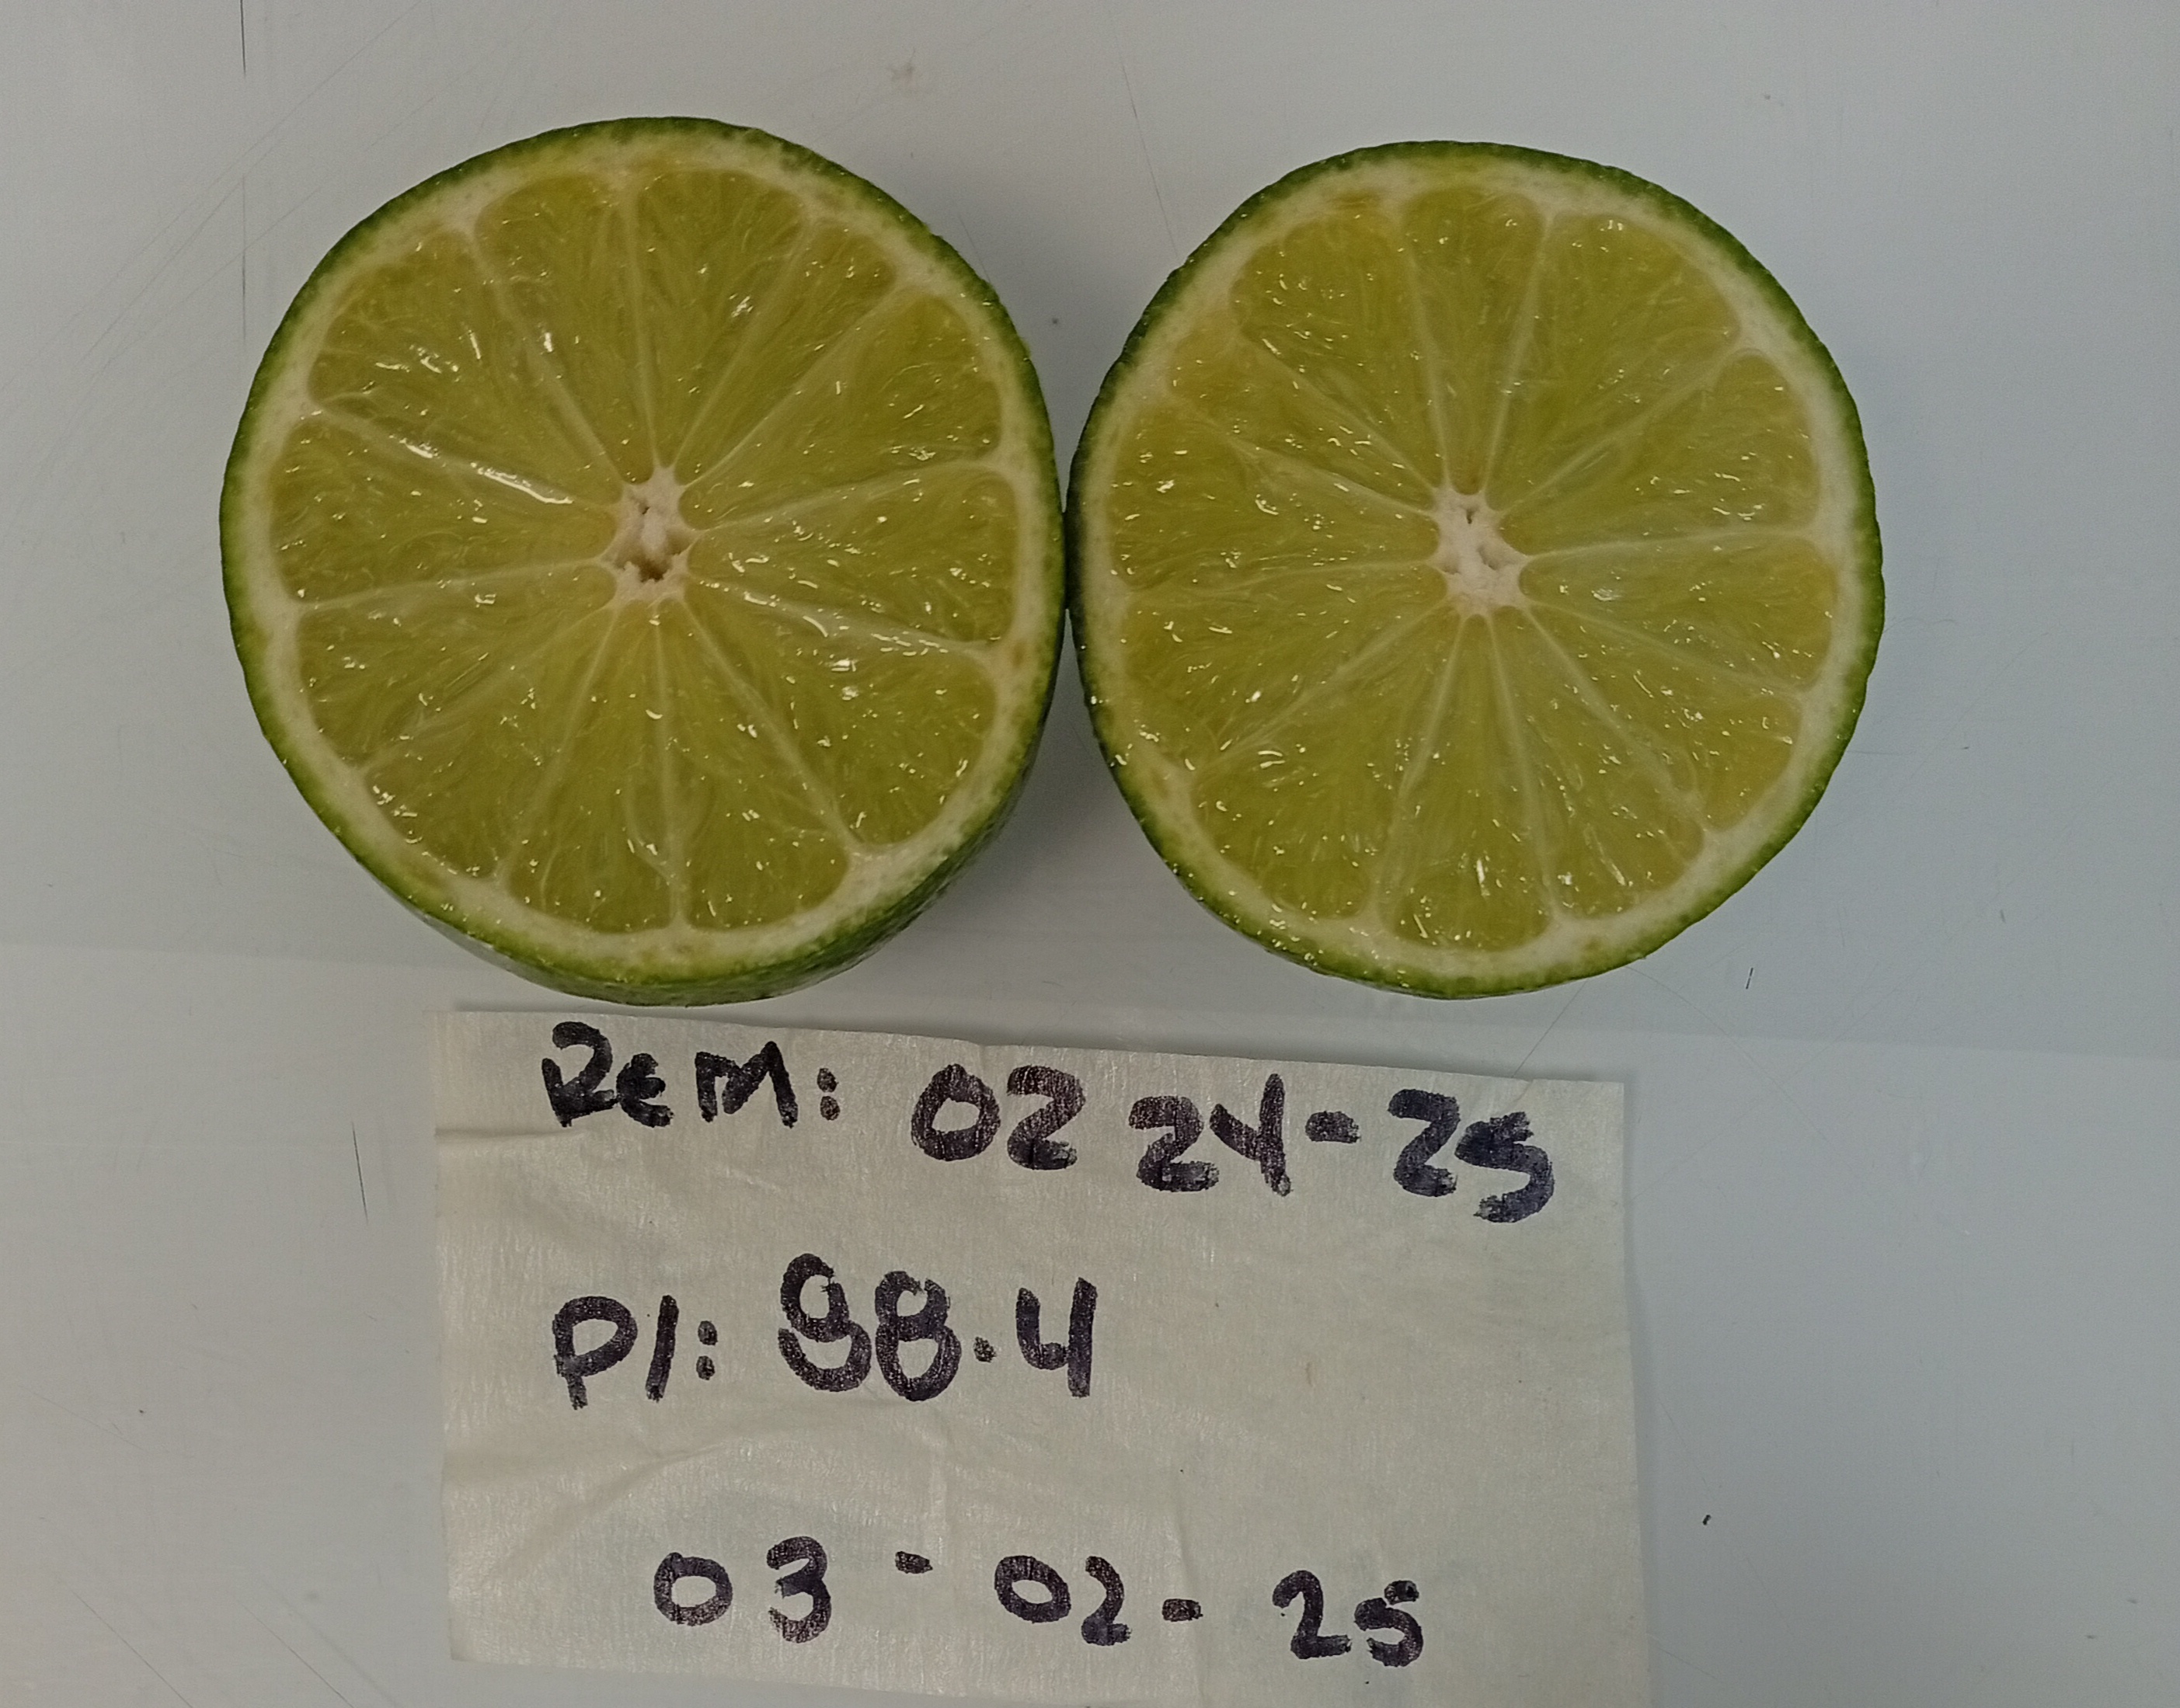 Rem: 0224-25
P/: 98.4
03-02-25